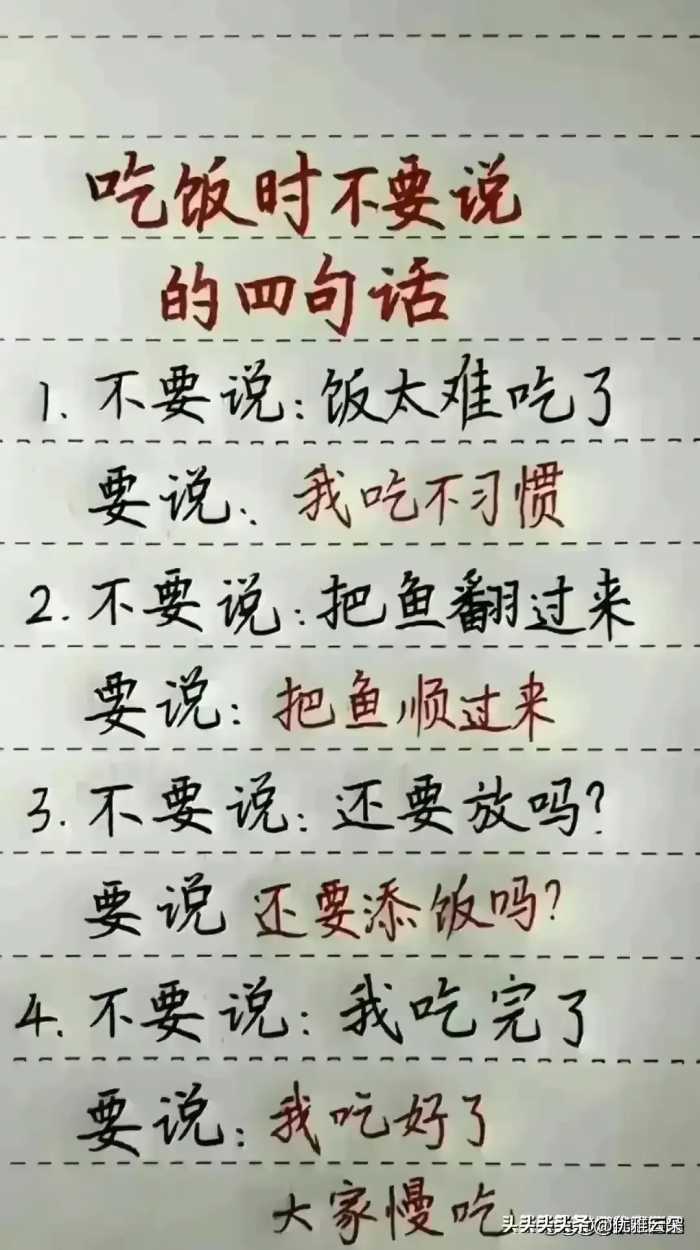 吃饭时不要说
的四句话
1. 不要说:饭太难吃了
要说:我吃不习惯
2. 不要说:把鱼翻过来
要说:把鱼顺过来
3. 不要说:还要放吗?
要说 还要添饭吗?
4. 不要说:我吃完了
要说:我吃好了
大家慢吃
@优雅云朵